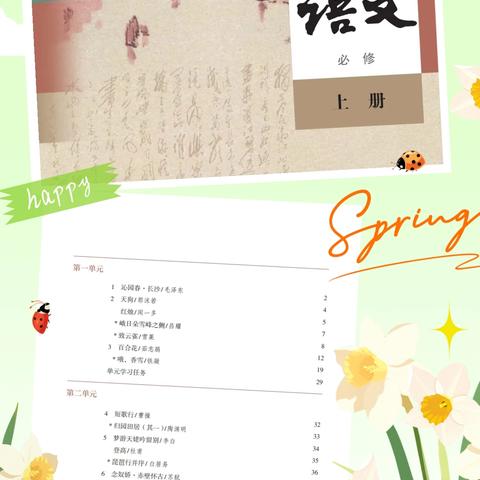 语文
必修
上册
happy
Spring
第一单元
1 沁园春·长沙/毛泽东 2
2 天狗/郭沫若 4
红烛/闻一多 5
*峨日朵雪峰之侧/昌耀 7
*致云雀/雪莱 8
3 百合花/茹志鹃 12
*哦，香雪/铁凝 19
单元学习任务 29
第二单元
4 短歌行/曹操 32
*归园田居（其一）/陶渊明 33
5 梦游天姥吟留别/李白 34
登高/杜甫 35
*琵琶行并序/白居易 36
6 念奴娇·赤壁怀古/苏轼